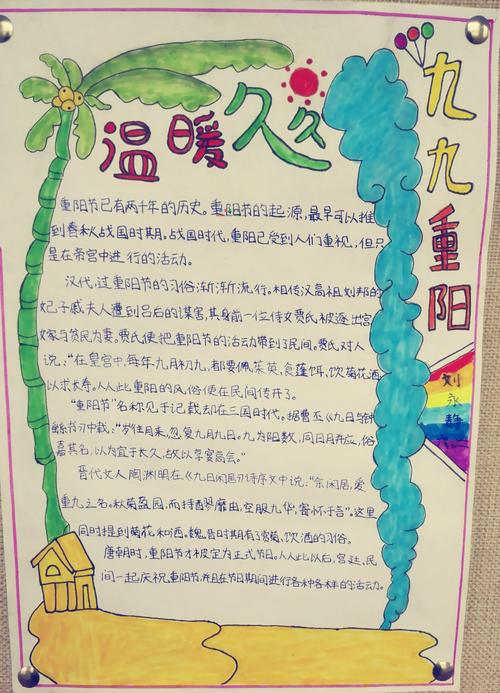 温暖久久
九九重阳
重阳节已有两千年的历史。重阳节的起源,最早可以推
到春秋战国时期。战国时代,重阳已受到人们重视,但只
是在帝宫中进行的活动。
汉代,过重阳节的习俗渐渐流行。相传汉高祖刘邦的
妃子戚夫人遭到吕后的谋害,其身前一位侍女贾氏被逐出宫
嫁与贫民为妻。贾氏便把重阳节的活动带到了民间。贾氏对人
说:"在皇宫中,每年九月初九,都要佩茱萸、食蓬饵、饮菊花酒
以求长寿。人人此重阳的风俗便在民间传开了。
"重阳节"名称见于记载却在三国时代。据曹丕《九日与钟
书》中载:"岁往月来,忽复九月九日。九为阳数,同日月并应,俗
嘉其名,以为宜于长久,故以享宴高会。"
晋代文人陶渊明在《九日闲居》诗序文中说:"余闲居,爱
重九之名。秋菊盈园,而持醪靡由,空服九华,寄怀于言"。这里
同时提到菊花和酒。魏晋时期有了赏菊、饮酒的习俗。
唐朝时,重阳节才被定为正式节日。人人此以后,宫廷、民
间一起庆祝重阳节,并且在节日期间进行各种各样的活动。
刘
永
静